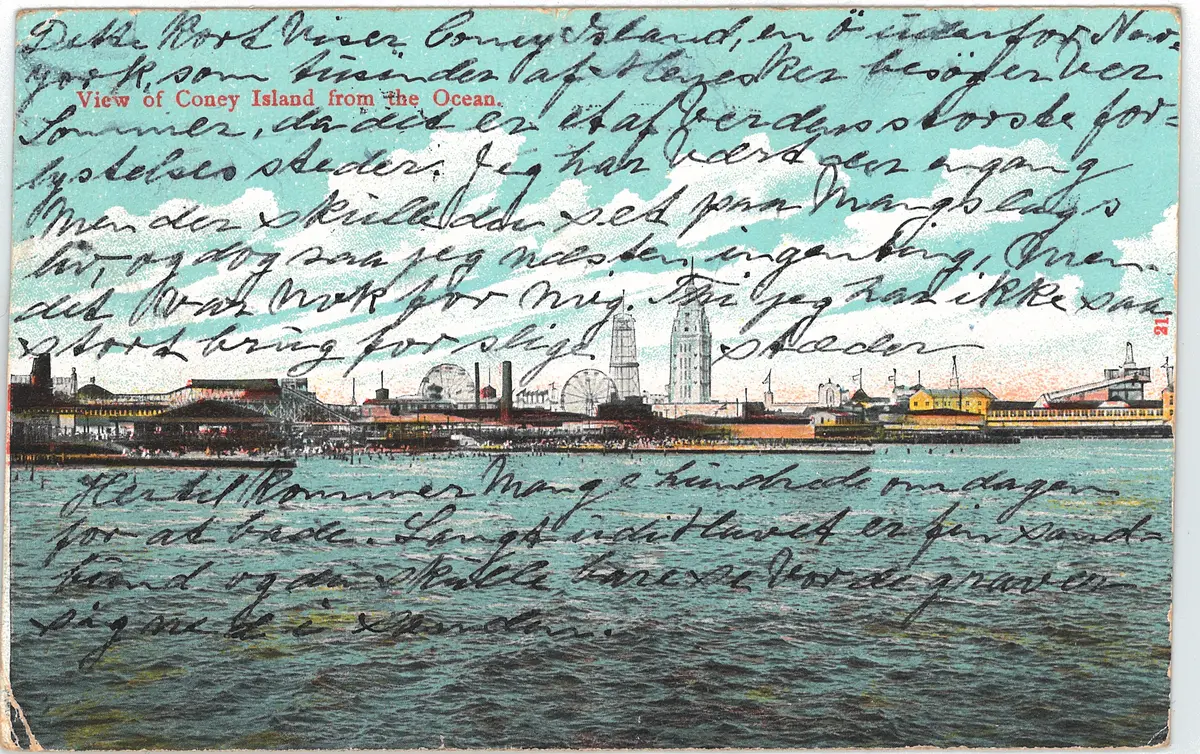 Dette Kort Viser Coney Island, en Ö udenfor New-
york, som tusinder af Mennesker besöger ver
View of Coney Island from the Ocean.
Sommer, da det er et af Verdens störste for=
lystelses steder. Jeg har vært der engang
Men der skulle du set paa Mangslags
liv, og dog saa jeg næsten ingenting, Men
det var nok for mig. Thi jeg har ikke saa
stort brug for slige stæder
21
Hertil Kommer Mange hundrede om dagen
for at bade. Langt ud i Havet er fin sand-
bund og du skulle bare se Vor de graver
sig ned i sanden.